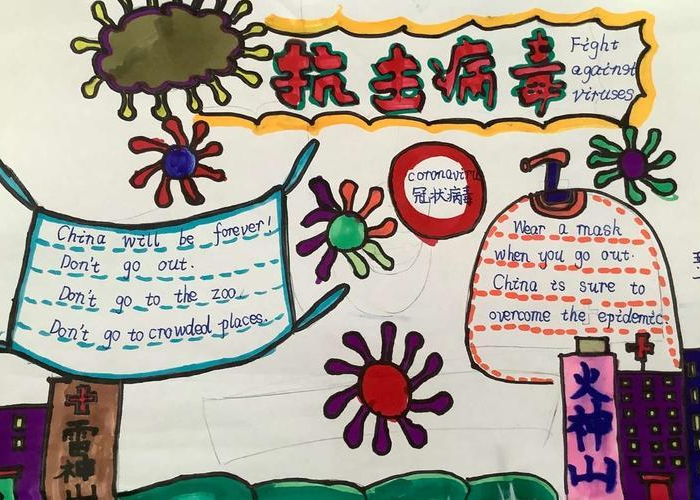 抗击病毒
Fight
against
viruses
coronavirus
冠状病毒
China will be forever!
Don't go out.
Don't go to the zoo.
Don't go to crowded places.
Wear a mask
when you go out.
China is sure to
overcome the epidemic
雷神山
火神山